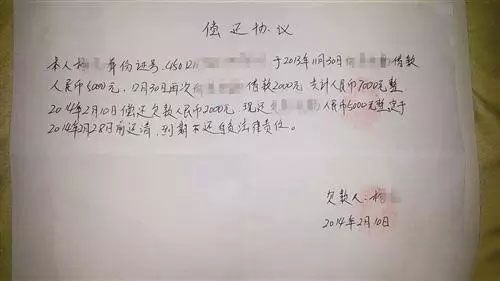 偿还协议
本人杨 身份证号:450121 于2013年11月30日 借款
人民币5000元,12月30日再次 借款2000元 共计人民币7000元整
2014年2月10日偿还欠款人民币2000元 现还 人民币5000元整定于
2014年2月28日前还清,到期不还自负法律责任。
欠款人:杨
2014年2月10日